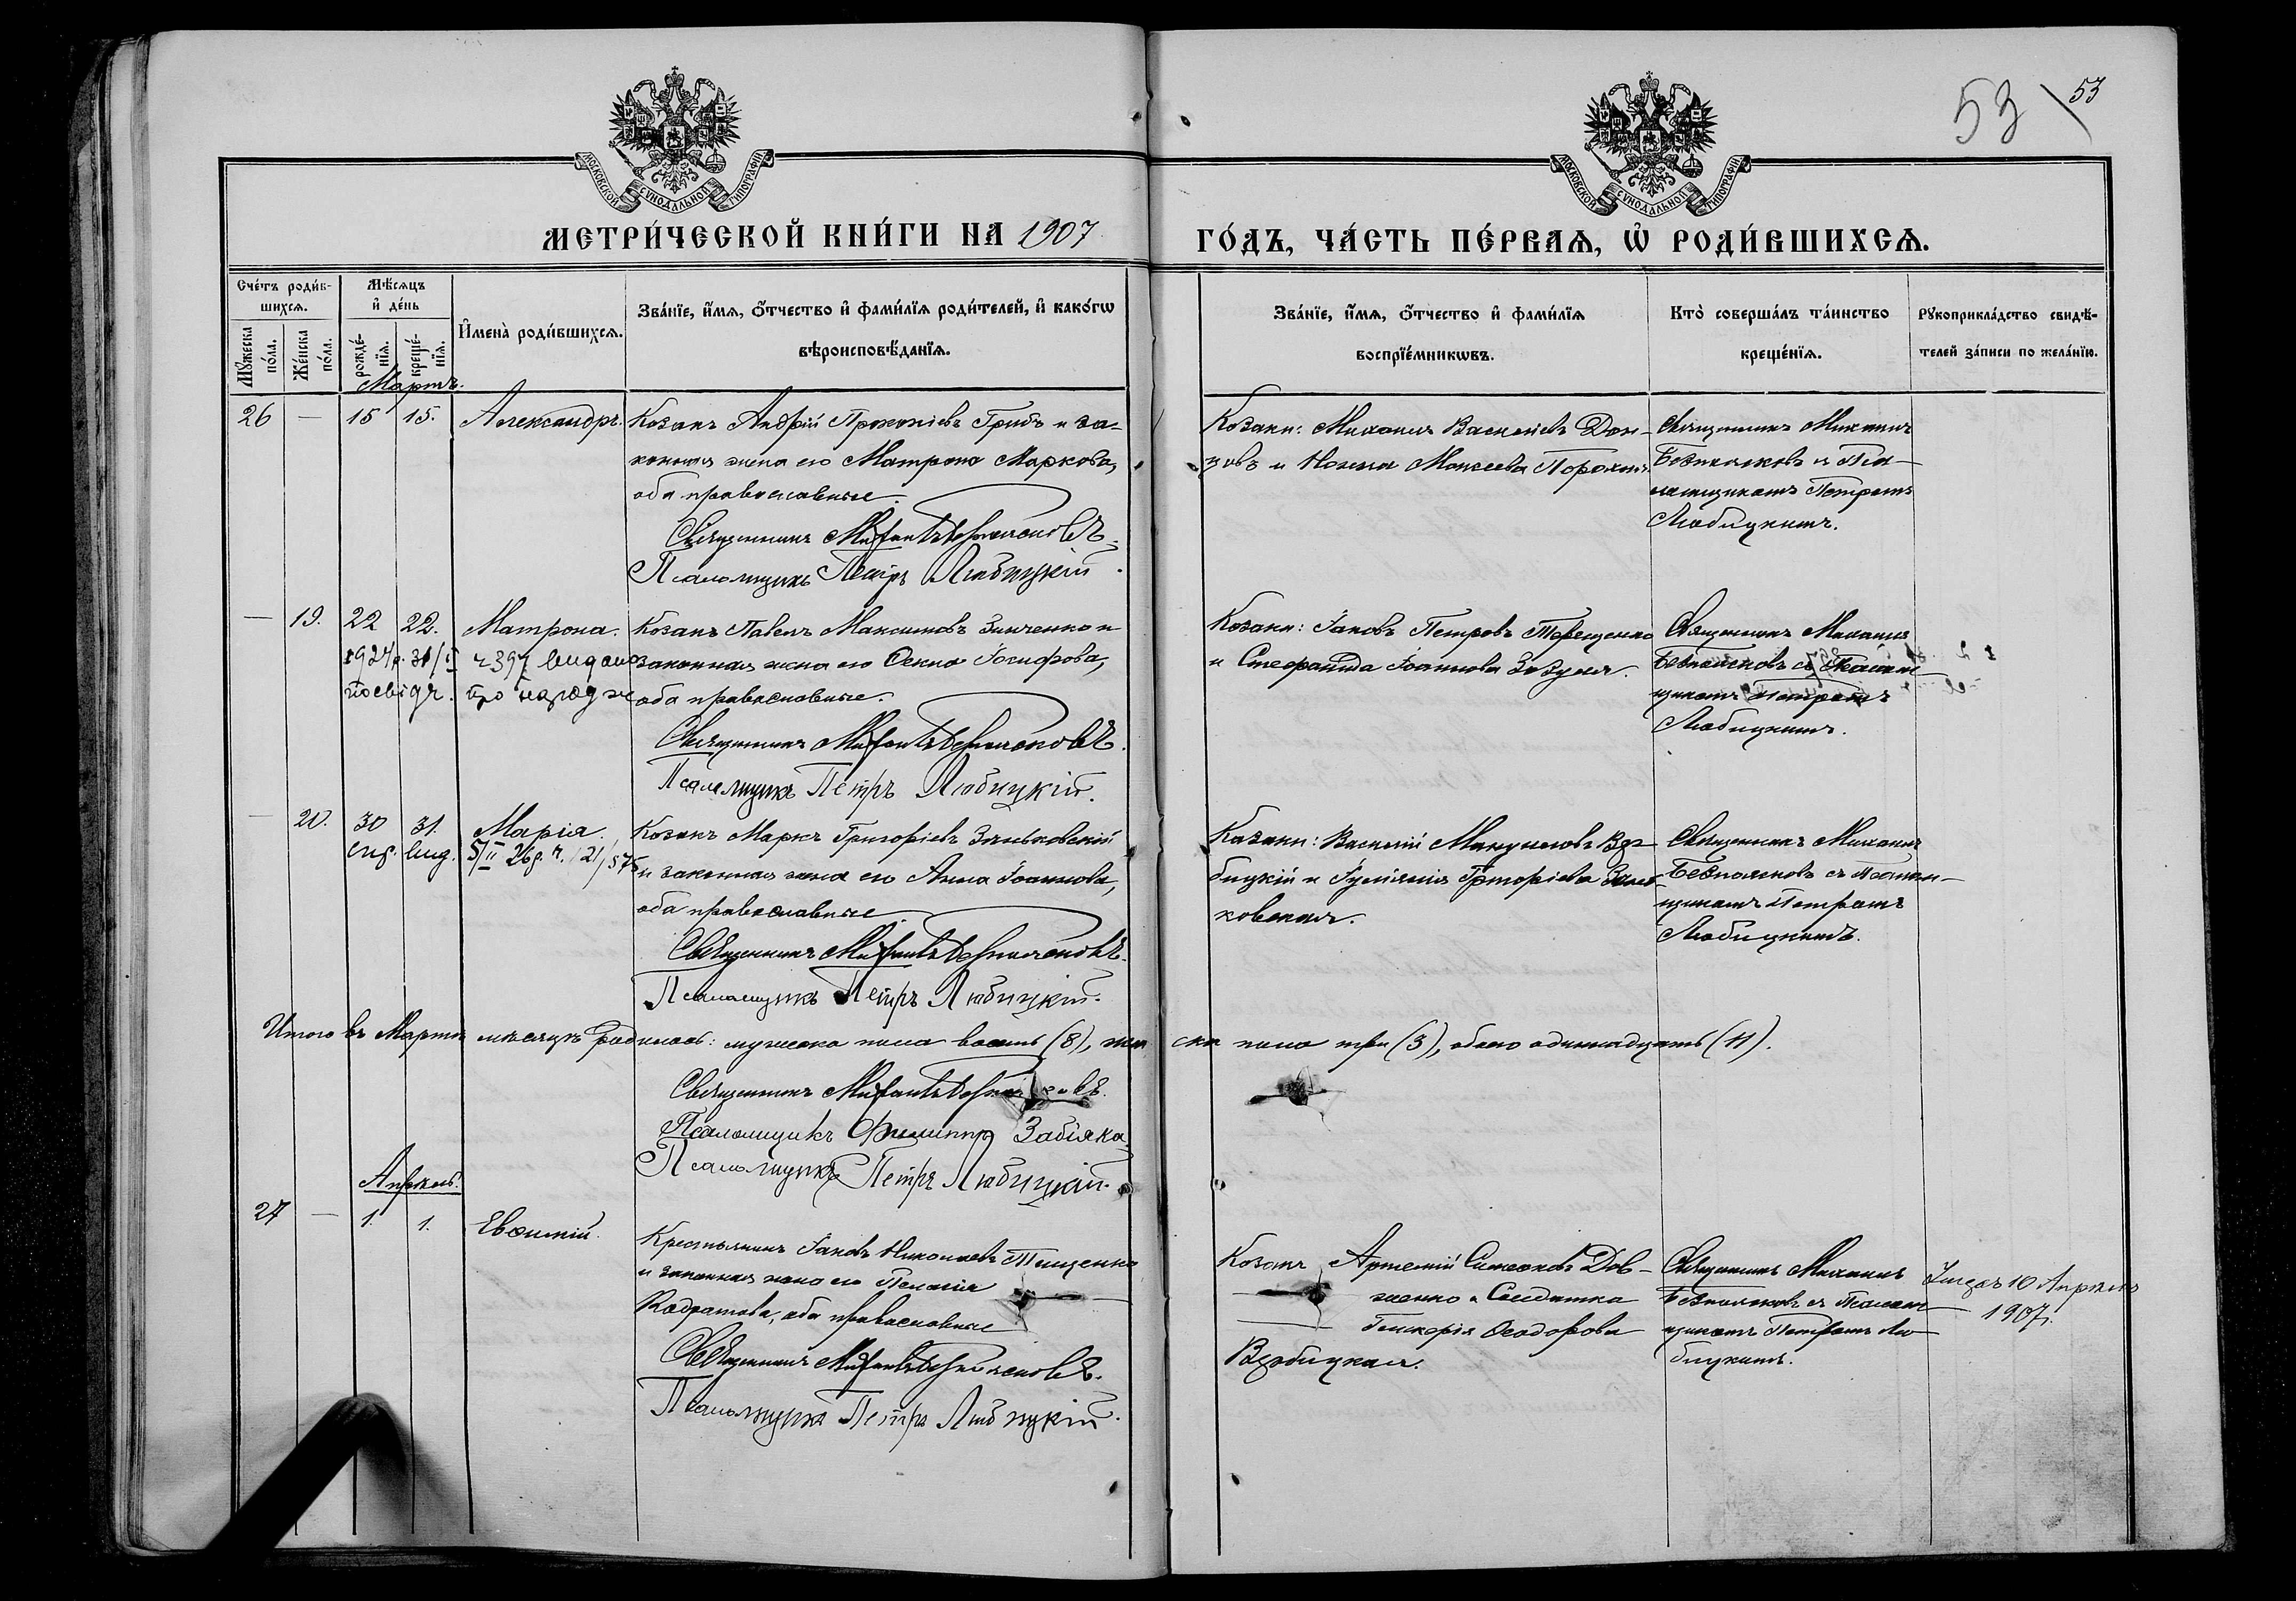 53 53
МОСКОВСКОЙ СѴНОДАЛЬНОЙ ТИПОГРАФІИ
МОСКОВСКОЙ СѴНОДАЛЬНОЙ ТИПОГРАФІИ
МЕТРИ́ЧЕСКОЙ КНИ́ГИ НА 1907 ГО́ДЪ, ЧА́СТЬ ПЕ́РВАѦ, Ѡ҆ РОДИ́ВШИХСѦ.
Сче́тъ роди́в-
шихсѧ.
Мꙋ́жеска по́ла.
Же́нска по́ла.
Мѣ́сѧцъ
и҆ де́нь
рожде́-
нїѧ.
креще́-
нїѧ.
И҆мена̀ роди́вшихсѧ.
Зва́нїе, и҆́мѧ, о҆́тчество и҆ фами́лїѧ роди́телей, и҆ како́гѡ
вѣроисповѣ́данїѧ.
Зва́нїе, и҆́мѧ, о҆́тчество и҆ фами́лїѧ
воспрїе́мникѡвъ.
Кто̀ соверша́лъ та́инство
креще́нїѧ.
Рꙋкоприкла́дство свидѣ́-
телей за́писи по жела́нїю.
Мартъ.
26 — 15 15. Александръ.
Козакъ Андрій Прокопіевъ Грибъ и за-
конная жена его Матрона Маркова,
оба православные.
Священникъ Михаилъ Безпалковъ.
Псаломщикъ Петръ Любицкій.
Козаки: Михаилъ Василіевъ Дон-
цовъ и Моисеева
Священникъ Михаилъ
Безпалковъ съ Пса-
ломщикомъ Петромъ
Любицкимъ.
— 19. 22 22. Матрона.
1927р. 31/I ч 397 видано
посвідч. про народж
Козакъ Павелъ Максимовъ Зинченко и
законная жена его Ѳекла Іосифова,
оба православные.
Священникъ Михаилъ Безпалковъ.
Псаломщикъ Петръ Любицкій.
Козаки: Іаковъ Петровъ Терещенко
и Стефанида Іоаннова Зозуля.
Священникъ Михаилъ
Безпалковъ съ Псалом-
щикомъ Петромъ
Любицкимъ.
— 20. 30 31. Марія.
вид. 5/II 26р.
Козакъ Маркъ Григоріевъ Заньковскій
и законная жена его Анна Іоаннова,
оба православные.
Священникъ Михаилъ Безпалковъ.
Псаломщикъ Петръ Любицкій.
Козаки: Василій Мануиловъ Вер-
бицкій и Іуліанія Григоріева Зань-
ковская.
Священникъ Михаилъ
Безпалковъ съ Псалом-
щикомъ Петромъ
Любицкимъ.
Итого въ Мартѣ мѣсяцѣ родилось: мужеска пола восемь (8), женска пола три (3), обоего одиннадцать (11).
Священникъ Михаилъ Безпалковъ.
Псаломщикъ Филиппъ Забіяка.
Псаломщикъ Петръ Любицкій.
Апрѣль.
27 — 1. 1. Евѳимій.
Крестьянинъ Іаковъ Николаевъ Тищенко
и законная жена его Пелагія
Кодратова, оба православные
Священникъ Михаилъ Безпалковъ.
Псаломщикъ Петръ Любицкій.
Козакъ Артемій Симеоновъ Дов-
женко и Солдатка
Гликерія Ѳеодорова
Вербицкая.
Священникъ Михаилъ
Безпалковъ съ Псалом-
щикомъ Петромъ Лю-
бицкимъ.
Умеръ 10 Апрѣля
1907г.